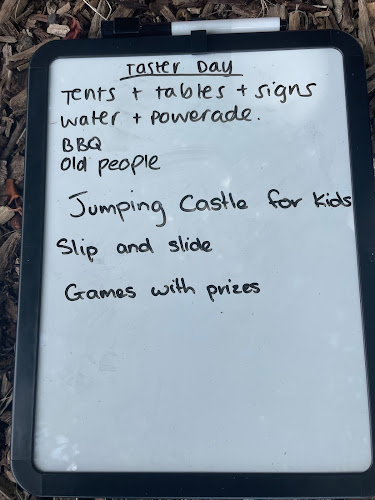 Taster Day
Tents + tables + signs
water + powerade.
BBQ
Old people
Jumping Castle for Kids
Slip and slide
Games with prizes